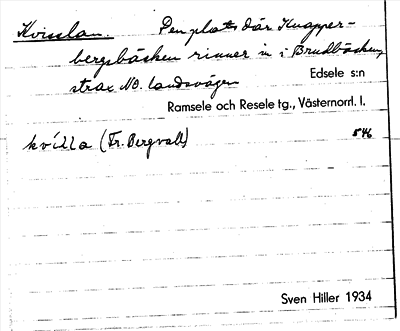 Kvisslan. Den plats där Knapper-
bergsbäcken rinner in i Brudbäcken,
strax NO. landsvägen
Edsele s:n
Ramsele och Resele tg., Västernorrl. l.
kvílla (Fr. Bergvall) 846
Sven Hiller 1934